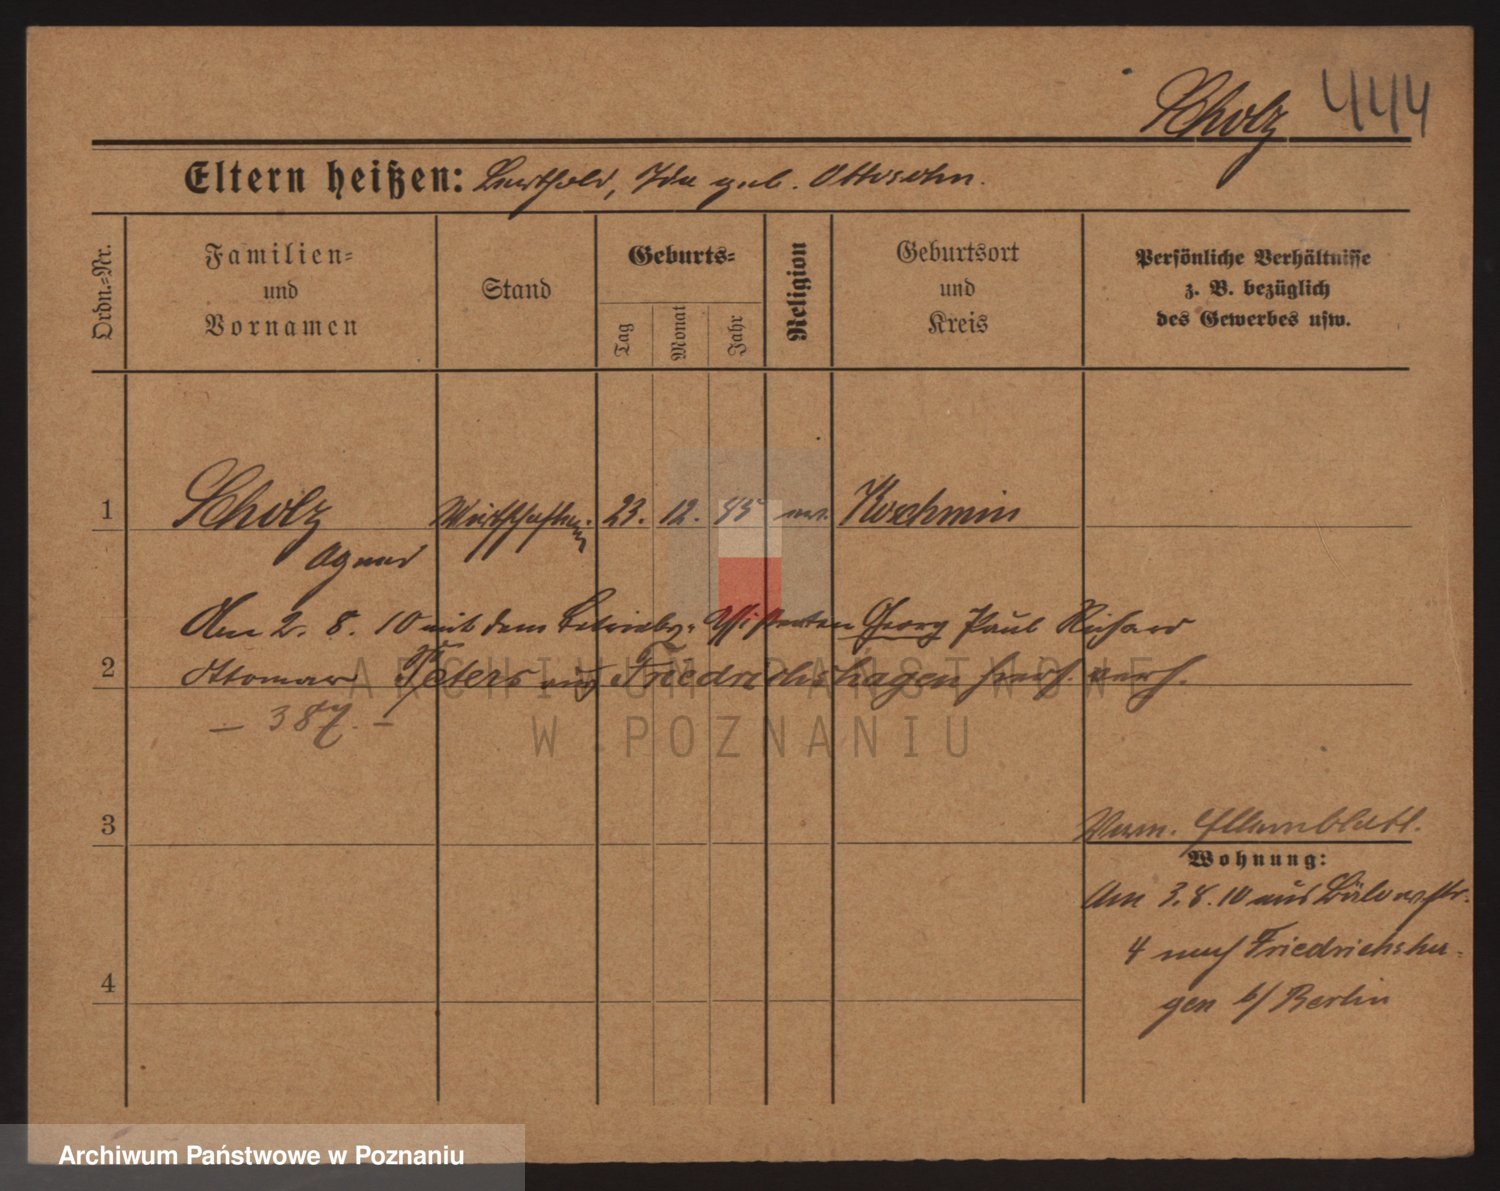 Scholz 444
Eltern heißen: Berthold, Ida geb. Ottosohn.
Ordn.=Nr.
Familien=
und
Vornamen
Stand
Geburts=
Tag
Monat
Jahr
Religion
Geburtsort
und
Kreis
Persönliche Verhältnisse
z. B. bezüglich
des Gewerbes usw.
1 Scholz 23. 12. 85 ev. Koschmin
Agnes
Am 2. 8. 10 mit dem Betriebs-Assistenten Georg Paul Richard
2 Ottomar Peters aus Friedrichshagen hier verh.
– 387. –
3
Verm. Elternblatt.
Wohnung:
Am 3. 8. 10 aus Bülowstr.
4 nach Friedrichsha-
4
gen b/ Berlin
ARCHIWUM PAŃSTWOWE
W POZNANIU
Archiwum Państwowe w Poznaniu